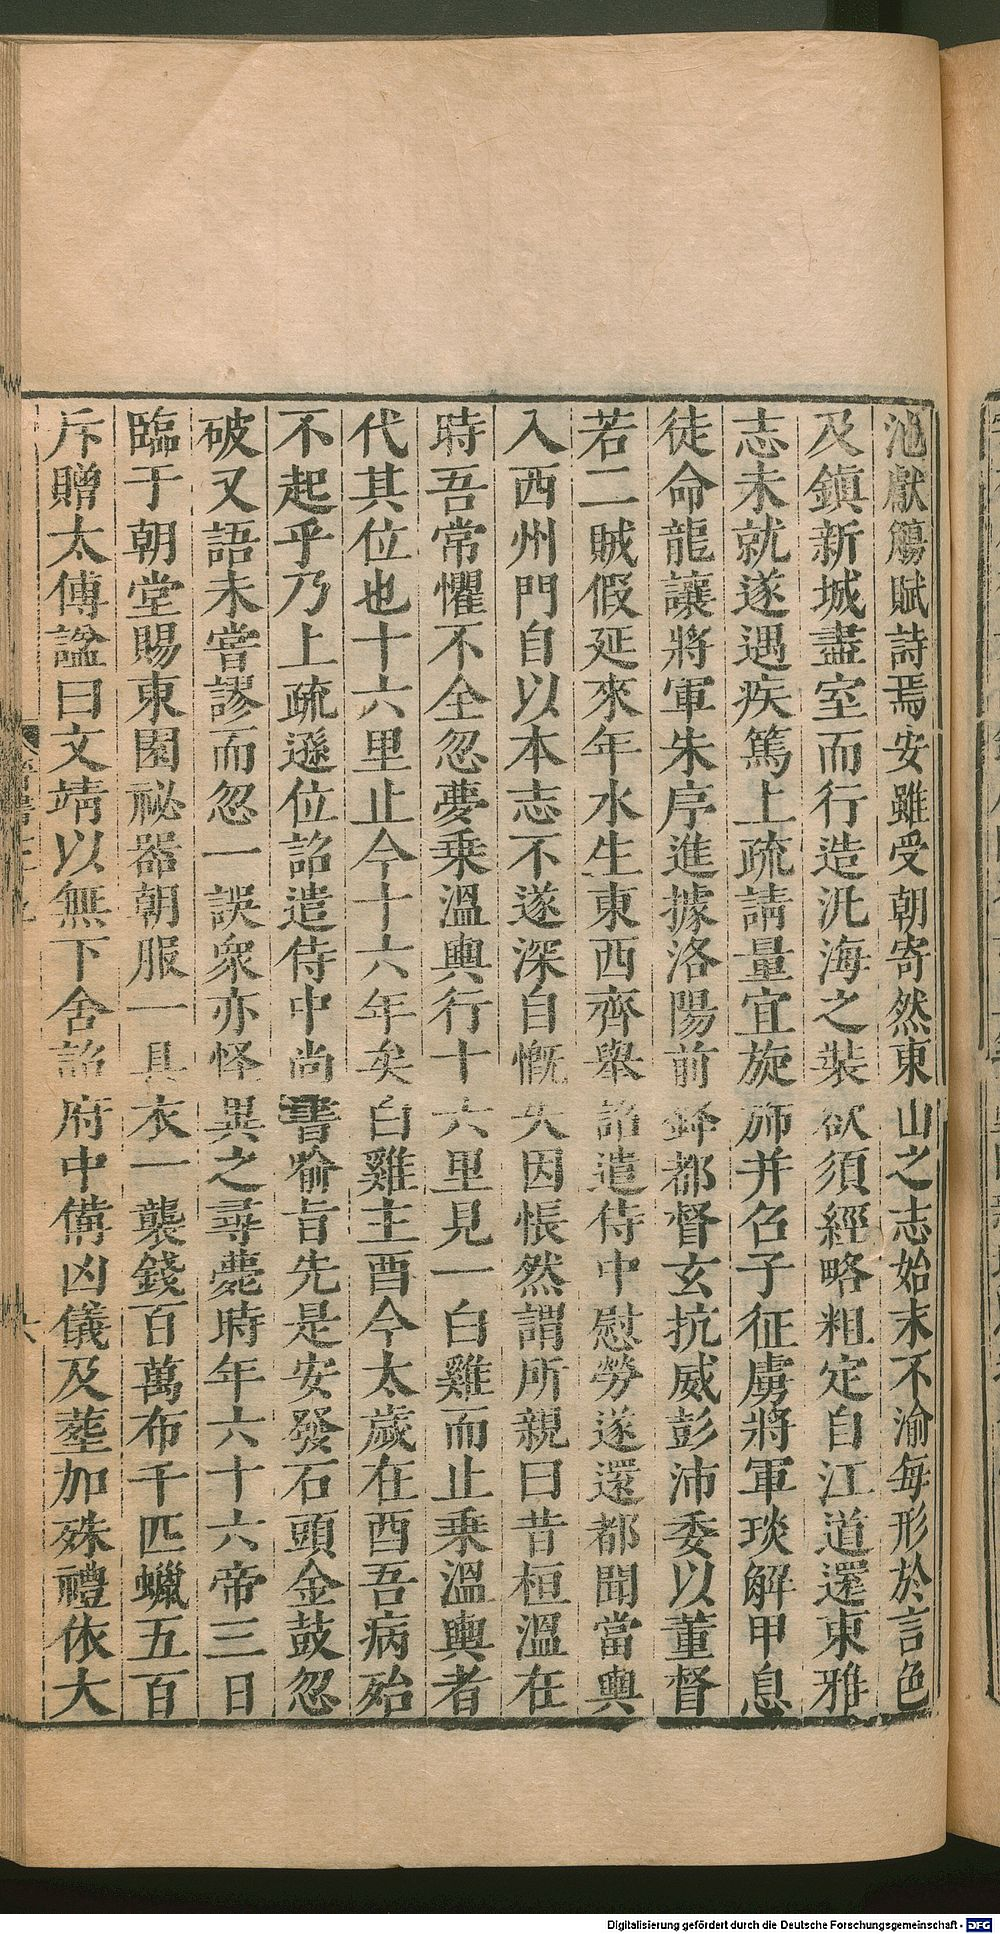 池獻觴賦詩焉安雖受朝寄然東山之志始末不渝每形於言色
及鎮新城盡室而行造汎海之裝欲須經略粗定自江道還東雅
志未就遂遇疾篤上疏請量宜旋斾并召子征虜將軍琰解甲息
徒命龍讓將軍朱序進據洛陽前鋒都督玄抗威彭沛委以董督
若二賊假延來年水生東西齊舉詔遣侍中慰勞遂還都聞當輿
入西州門自以本志不遂深自慨失因悵然謂所親曰昔桓溫在
時吾常懼不全忽夢乘溫輿行十六里見一白雞而止乘溫輿者
代其位也十六里止今十六年矣白雞主酉今太歲在酉吾病殆
不起乎乃上疏遜位詔遣侍中尚書喻旨先是安發石頭金鼓忽
破又語未嘗謬而忽一誤衆亦怪異之尋薨時年六十六帝三日
臨于朝堂賜東園祕器朝服一具衣一襲錢百萬布千匹蠟五百
斥贈太傅諡曰文靖以無下舍詔府中備凶儀及葬加殊禮依大
Digitalisierung gefördert durch die Deutsche Forschungsgemeinschaft - DFG